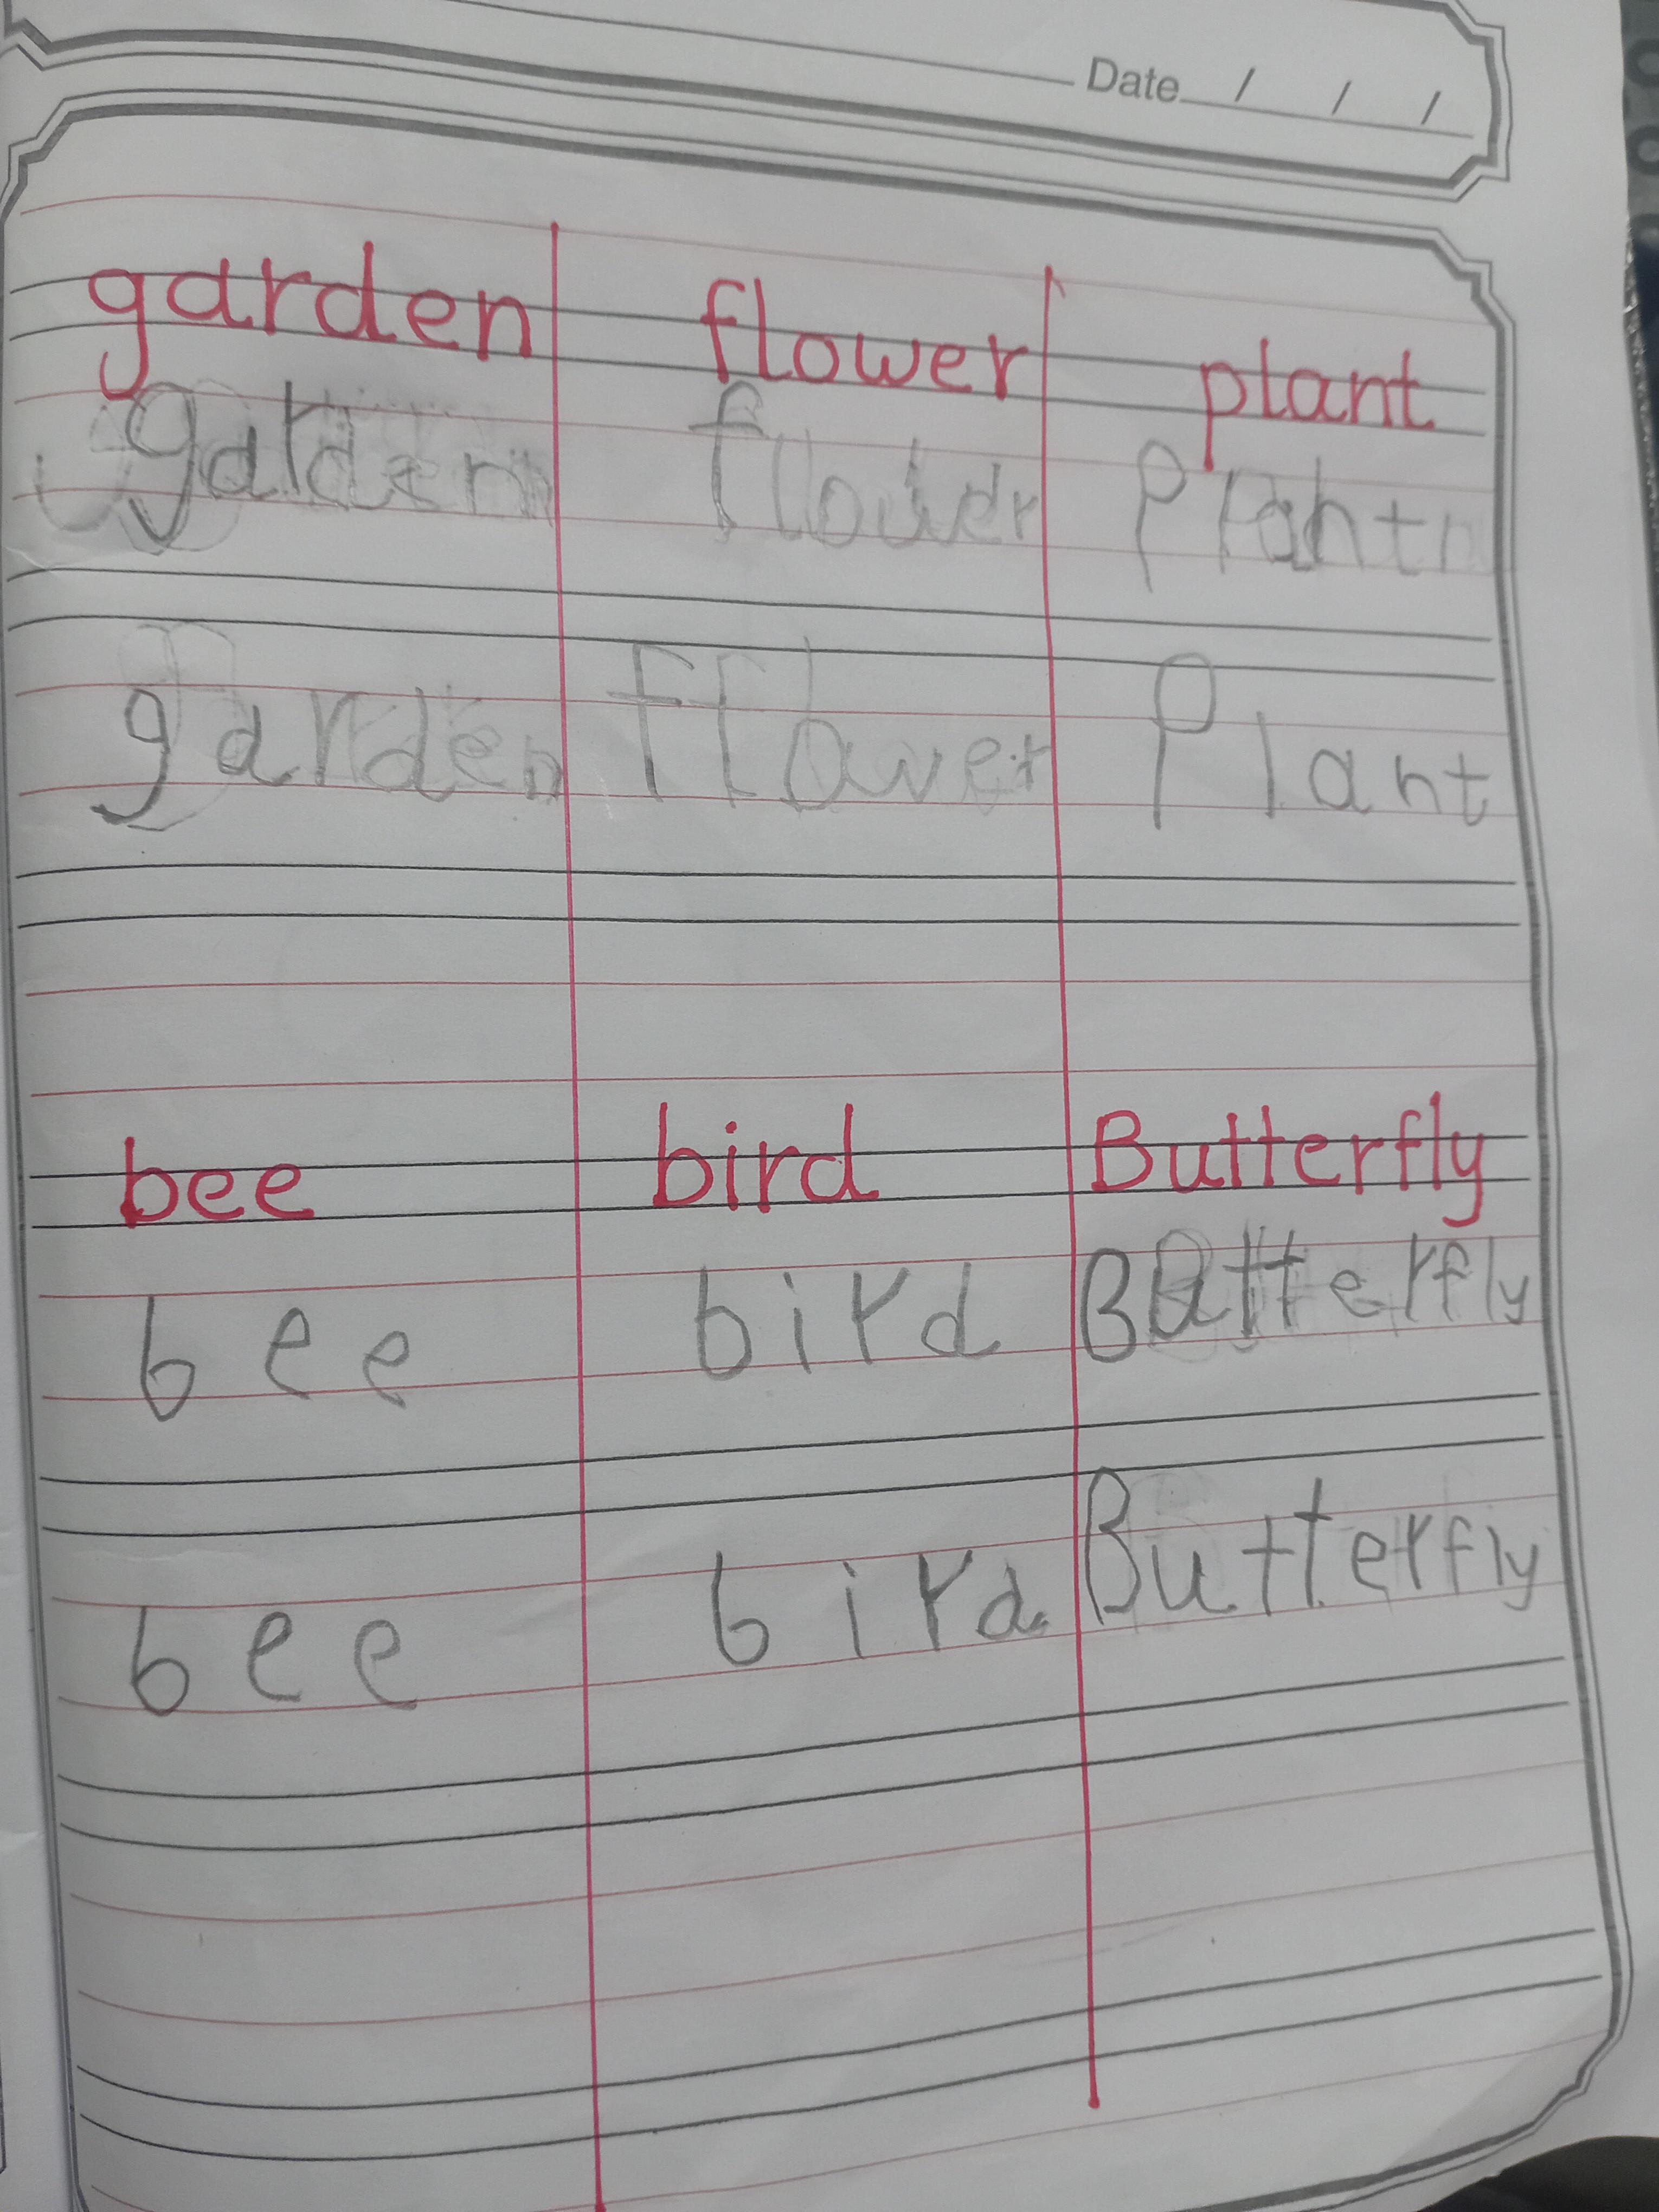 Date / / /
garden flower plant
garden flower Plant
garden flower Plant
bee bird Butterfly
bee bird Butterfly
bee bird Butterfly